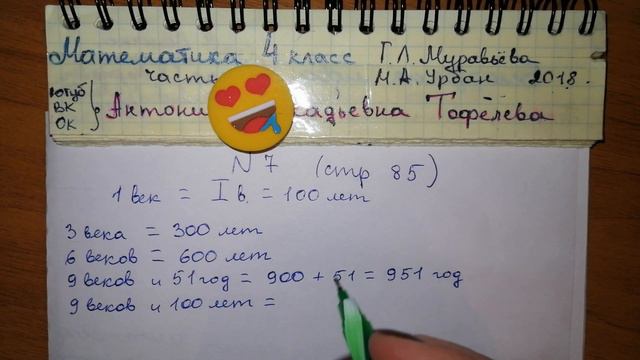 Математика 4 класс Г.Л. Муравьёва
часть М.А. Урбан 2018.
ютуб
ВК
ОК
Тофелева
N 7 (стр 85)
1 век = I в. = 100 лет
3 века = 300 лет
6 веков = 600 лет
9 веков и 51 год = 900 + 51 = 951 год
9 веков и 100 лет =